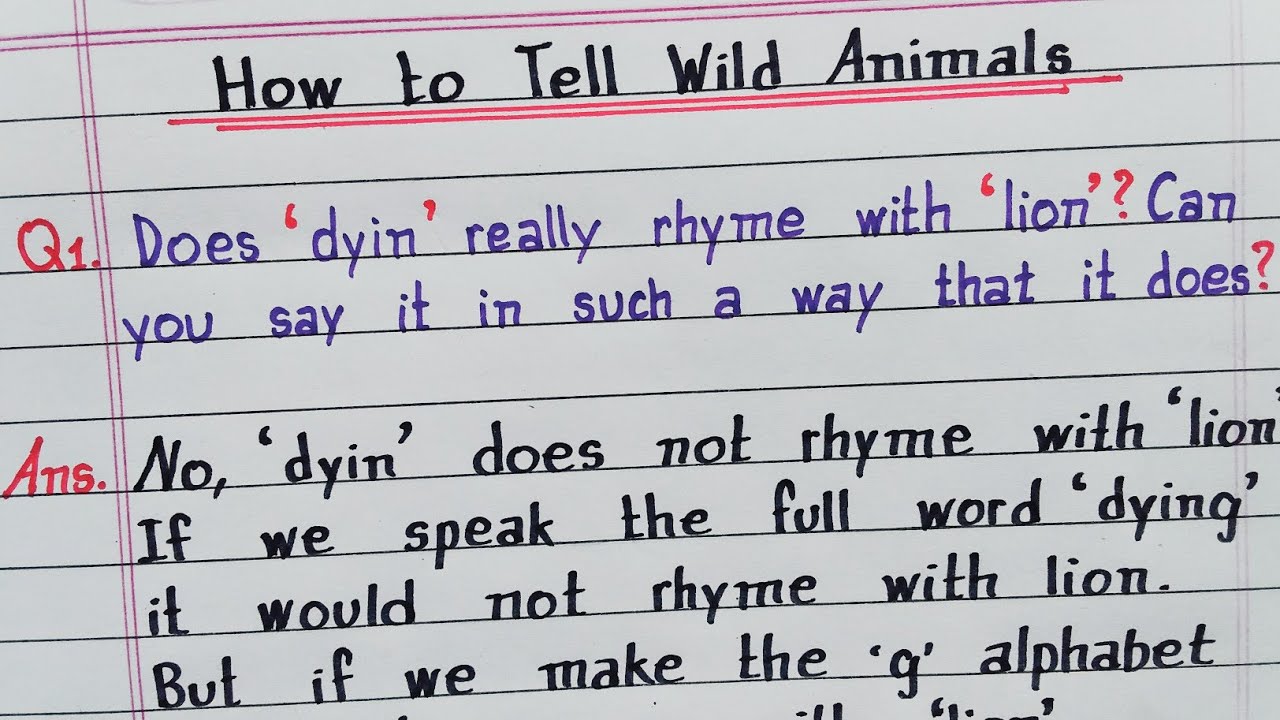 How to Tell Wild Animals
Q1. Does 'dyin' really rhyme with 'lion'? Can
you say it in such a way that it does?
Ans. No, 'dyin' does not rhyme with 'lion'
If we speak the full word 'dying'
it would not rhyme with lion.
But if we make the 'g' alphabet
'lion'